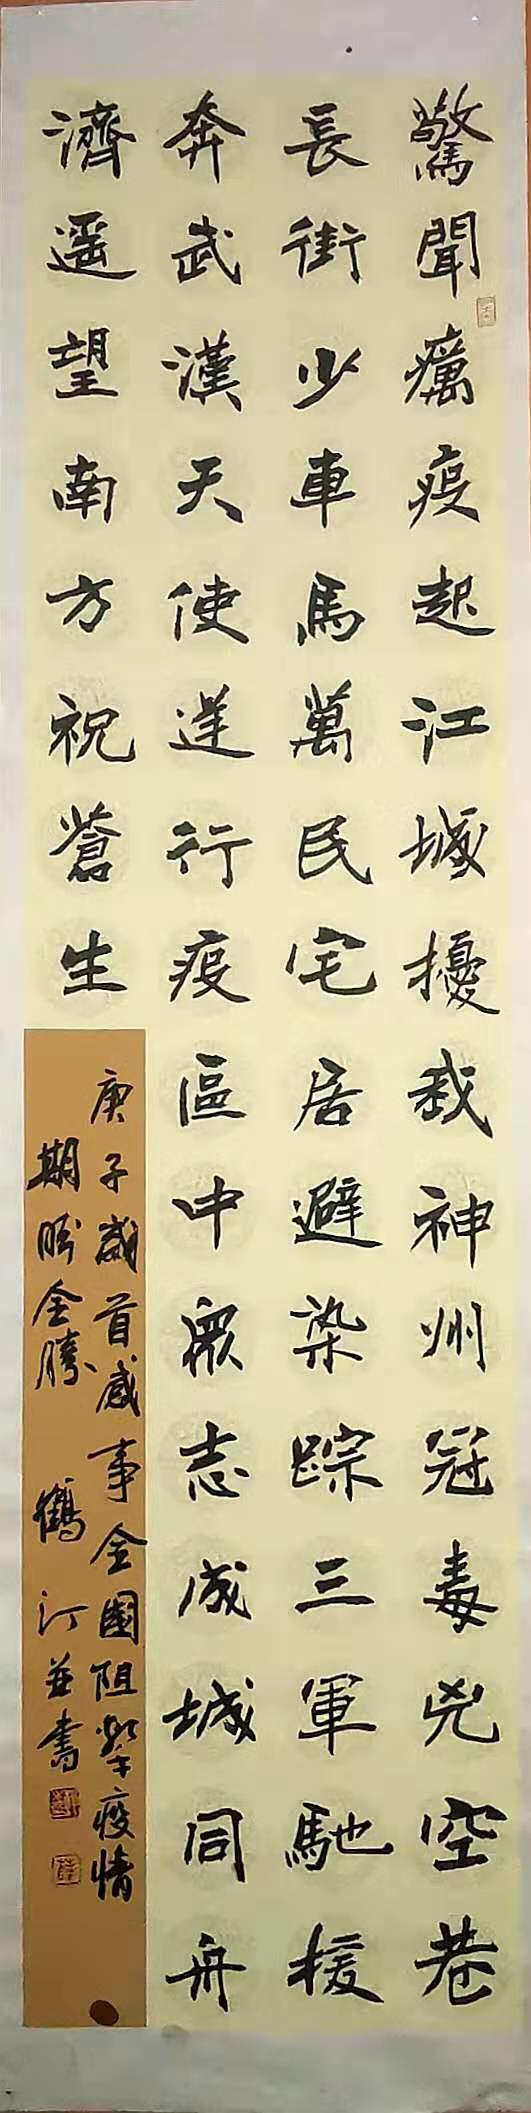 驚聞癘疫起江城擾我神州冠毒兇空巷
長街少車馬萬民宅居避染踪三軍馳援
奔武漢天使逆行疫區中眾志成城同舟
濟遥望南方祝蒼生
庚子歲首感事全國阻擊疫情
期賦全勝 鶴汀並書